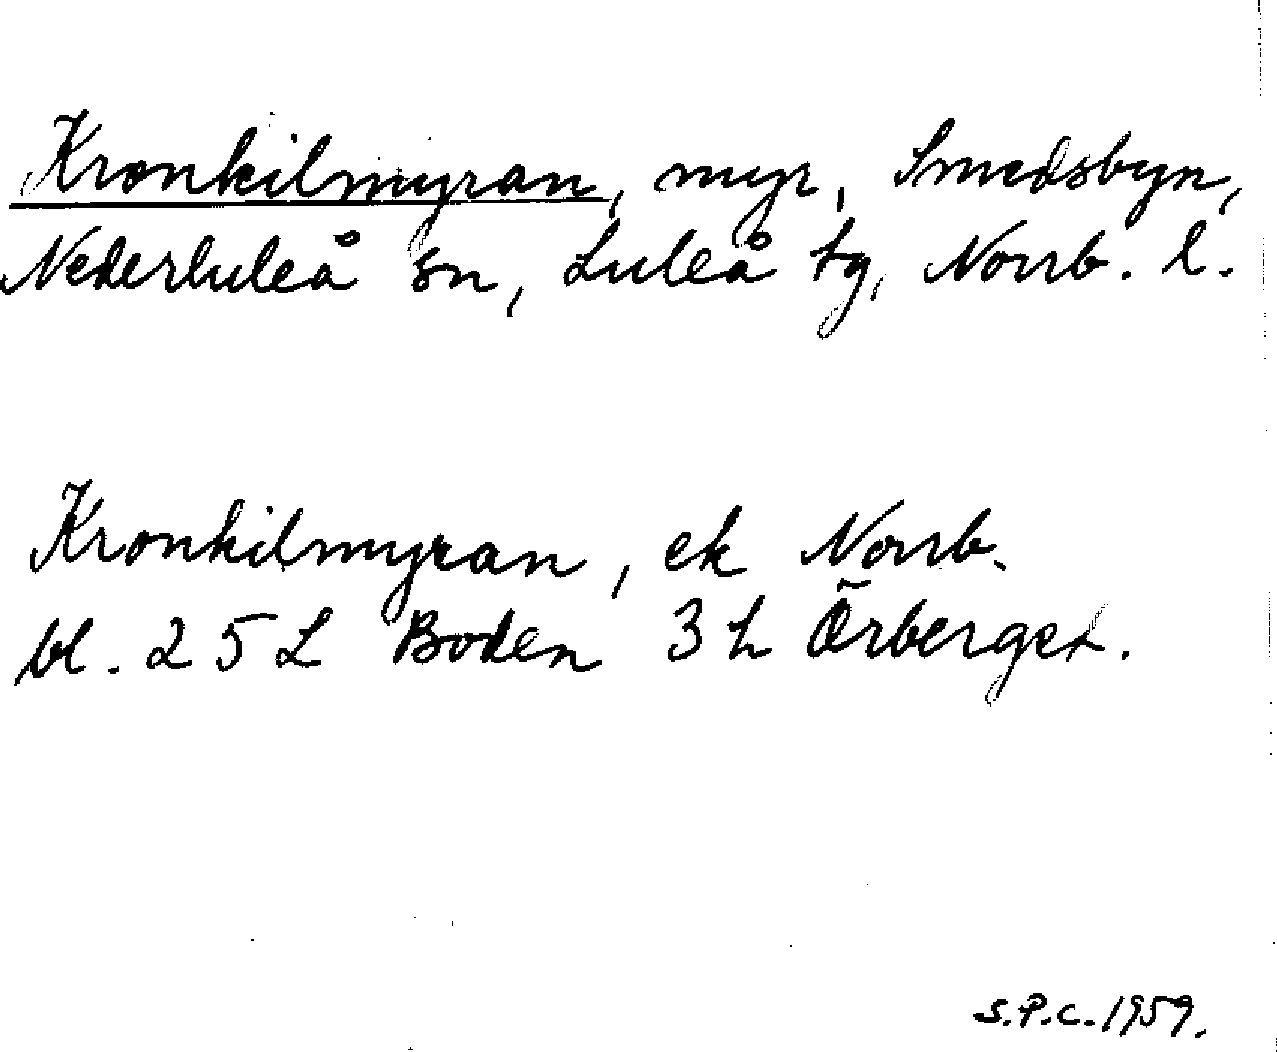 Kronkilmyran, myr, Smedsbyn,
Nederluleå sn, Luleå tg, Norrb. l.
Kronkilmyran, ek Norrb.
bl. 25 L Boden 3 h Örberget.
S.P.C. 1959.